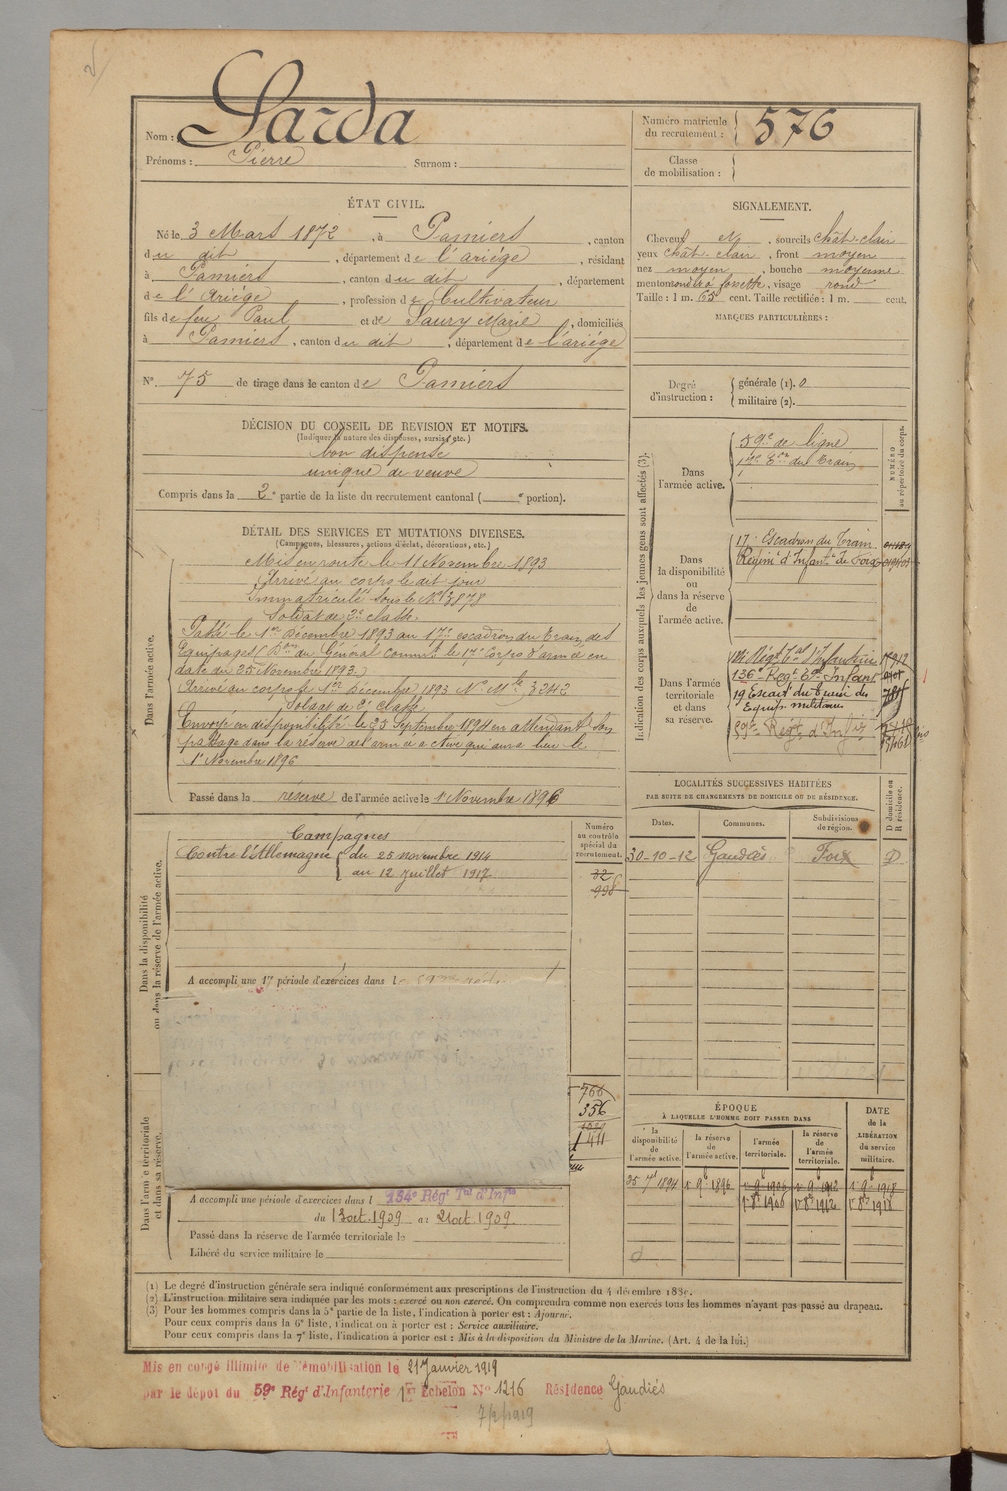 Nom : Sarda
Prénoms : Pierre Surnom :
Numéro matricule du recrutement : 576
Classe de mobilisation :
ÉTAT CIVIL.
Né le 3 Mars 1872, à Pamiers, canton
du dit, département de l'ariége, résidant
à Pamiers, canton du dit, département
de l'Ariége, profession de Cultivateur
fils de feu Paul et de Saury Marie, domiciliés
à Pamiers, canton du dit, département de l'ariége
N° 75 de tirage dans le canton de Pamiers
SIGNALEMENT.
Cheveux N, sourcils chât. clair
yeux chât. clair, front moyen
nez moyen, bouche moyenne
menton rond à fossette, visage rond
Taille : 1 m. 65 cent. Taille rectifiée : 1 m. cent.
MARQUES PARTICULIÈRES :
Degré d'instruction : générale (1). 0
militaire (2).
DÉCISION DU CONSEIL DE REVISION ET MOTIFS.
(Indiquer la nature des dispenses, sursis, etc.)
bon dispensé
unique de veuve
Compris dans la 2e partie de la liste du recrutement cantonal ( e portion).
DÉTAIL DES SERVICES ET MUTATIONS DIVERSES.
(Campagnes, blessures, actions d'éclat, décorations, etc.)
Dans l'armée active.
Mis en route le 11 Novembre 1893
Arrivé au corps le dit jour
Immatriculé sous le N° 3878
Soldat de 2e classe
Passé le 1er Décembre 1893 au 17e escadron du Train des
Equipages (Don du Général command t le 17e Corps d'armée en
date du 25 Novembre 1893.)
Arrivé au corps le 1er Décembre 1893 N° Mle 3242
Soldat de 2e classe
Envoyé en disponibilité le 25 Septembre 1894 en attendant son
passage dans la réserve de l'armée active qui aura lieu le
1er Novembre 1896
Passé dans la réserve de l'armée active le 1er Novembre 1896
Indication des corps auxquels les jeunes gens sont affectés (3).
NUMÉRO au répertoire du corps.
Dans l'armée active.
59e de ligne
17e Eon du Train
Dans la disponibilité ou dans la réserve de l'armée active.
17e Escadron du Train
Régimt d'Infantie de Foix
Dans l'armée territoriale et dans sa réserve.
136e Regt Tal Infant
19 Escadn du Train des
Equip. militaires
59e Régt d'Infie
LOCALITÉS SUCCESSIVES HABITÉES
PAR SUITE DE CHANGEMENTS DE DOMICILE OU DE RÉSIDENCE.
Dates. Communes. Subdivisions de région. D domicile ou R résidence.
30-10-12 Gaudiès Foix D
Dans la disponibilité ou dans la réserve de l'armée active.
Numéro au contrôle spécial du recrutement.
32
998
Campagnes
Contre l'Allemagne du 25 novembre 1914
au 12 Juillet 1917
A accompli une 1re période d'exercices dans l
766
356
1411
Dans l'armée territoriale et dans sa réserve.
A accompli une période d'exercices dans l 134e Régt Tal d'Infie
du 13 oct. 1909 au 21 oct 1909.
Passé dans la réserve de l'armée territoriale le
Libéré du service militaire le
ÉPOQUE
À LAQUELLE L'HOMME DOIT PASSER DANS
la disponibilité de l'armée active. la réserve de l'armée active. l'armée territoriale. la réserve de l'armée territoriale. DATE de la LIBÉRATION du service militaire.
25 7bre 1894 1er 9b 1896 1er 9b 1906 1er 9b 1912 1er 9b 1918
1er 8b 1906 1er 8b 1912 1er 8b 1918
(1) Le degré d'instruction générale sera indiqué conformément aux prescriptions de l'instruction du 4 décembre 1889.
(2) L'instruction militaire sera indiquée par les mots : exercé ou non exercé. On comprendra comme non exercés tous les hommes n'ayant pas passé au drapeau.
(3) Pour les hommes compris dans la 5e partie de la liste, l'indication à porter est : Ajourné.
Pour ceux compris dans la 6e liste, l'indication à porter est : Service auxiliaire.
Pour ceux compris dans la 7e liste, l'indication à porter est : Mis à la disposition du Ministre de la Marine. (Art. 4 de la loi.)
Mis en congé illimité de démobilisation le 21 Janvier 1919
par le dépôt du 59e Régt d'Infanterie 1er Echelon N° 1216 Résidence Gaudiés
7/2/1919